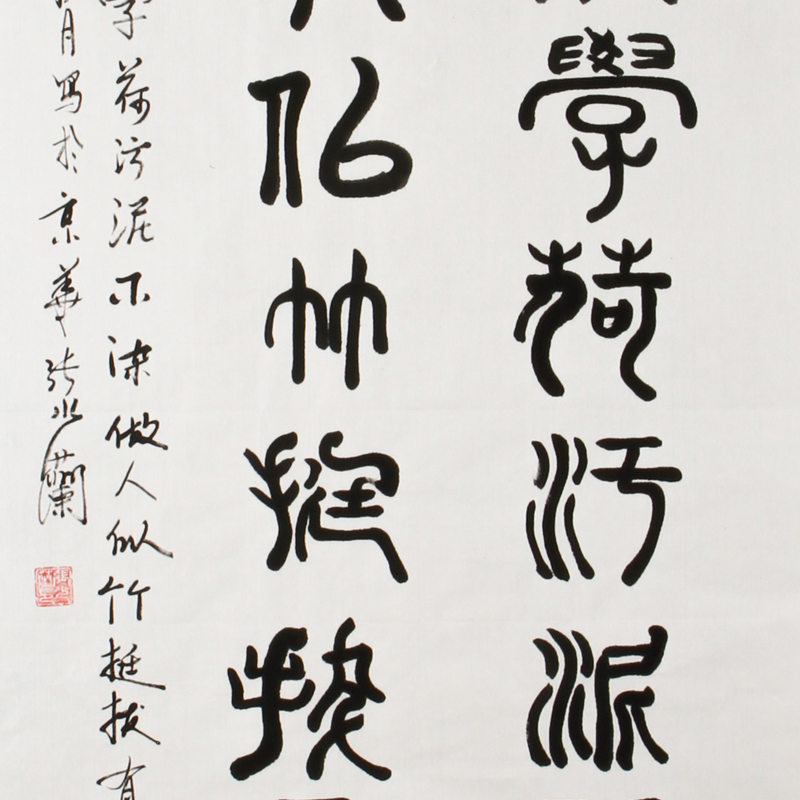 學荷污泥
人似竹挺拔
學荷污泥不染做人似竹挺拔有
月寫於京華張水蘭